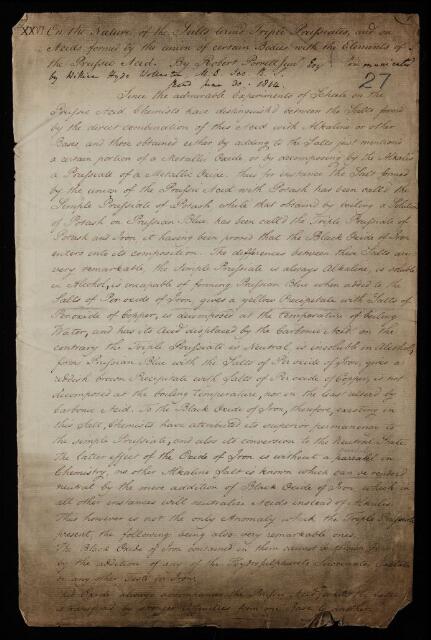 XXVI On the Nature of the Salts termed Triple Prussiates, and on
Acids formed by the union of certain Bodies with the Elements of
the Prussic Acid. By Robert Porrett Junr Esq. Communicated
by William Hyde Wollaston M.D. Sec. R.S. 27
Read June 30. 1814.
Since the admirable Experiments of Scheele on the
Prussic Acid Chemists have distinguish'd between the Salts formed
by the direct combination of this Acid with Alkaline or other
Bases, and those obtained either by adding to the Salts just mentioned
a certain portion of a Metallic Oxide or by decomposing by the Alkalies
a Prussiate of a Metallic Oxide. Thus for instance the Salt formed
by the union of the Prussic Acid with Potash has been called the
Simple Prussiate of Potash while that obtained by boiling a Solution
of Potash on Prussian Blue has been call'd the Triple Prussiate of
Potash and Iron, it having been proved that the Black Oxide of Iron
enters into its composition. The differences between these Salts are
very remarkable, the Simple Prussiate is always Alkaline, is soluble
in Alcohol, is incapable of forming Prussian Blue when added to the
Salts of Peroxide of Iron, gives a yellow Precipitate with Salts of
Peroxide of Copper, is decomposed at the temperature of boiling
Water, and has its Acid displaced by the Carbonic Acid: on the
contrary the Triple Prussiate is Neutral, is insoluble in Alcohol,
forms Prussian Blue with the Salts of Peroxide of Iron, gives a
reddish brown Precipitate with Salts of Peroxide of Copper, is not
decomposed at the boiling Temperature, nor is the Salt altered by
Carbonic Acid. To the Black Oxide of Iron, therefore, existing in
this Salt, Chemists have attributed its superior permanency to
the simple Prussiate, and also its conversion to the Neutral State.
The latter effect of the Oxide of Iron is without a parallel in
Chemistry, no other Alkaline Salt is known which can be rendered
neutral by the mere addition of Black Oxide of Iron which in
all other instances will neutralize Acids instead of Alkalies.
This however is not the only Anomaly which the Triple Prussiates
present, the following being also very remarkable ones.
The Black Oxide of Iron contained in them cannot be
by the addition of any of the Hydrosulphurets
or any other Tests for Iron.
Oxide always accompanies the Prussic Acid
transferred by stronger Affinities from one Base to another.